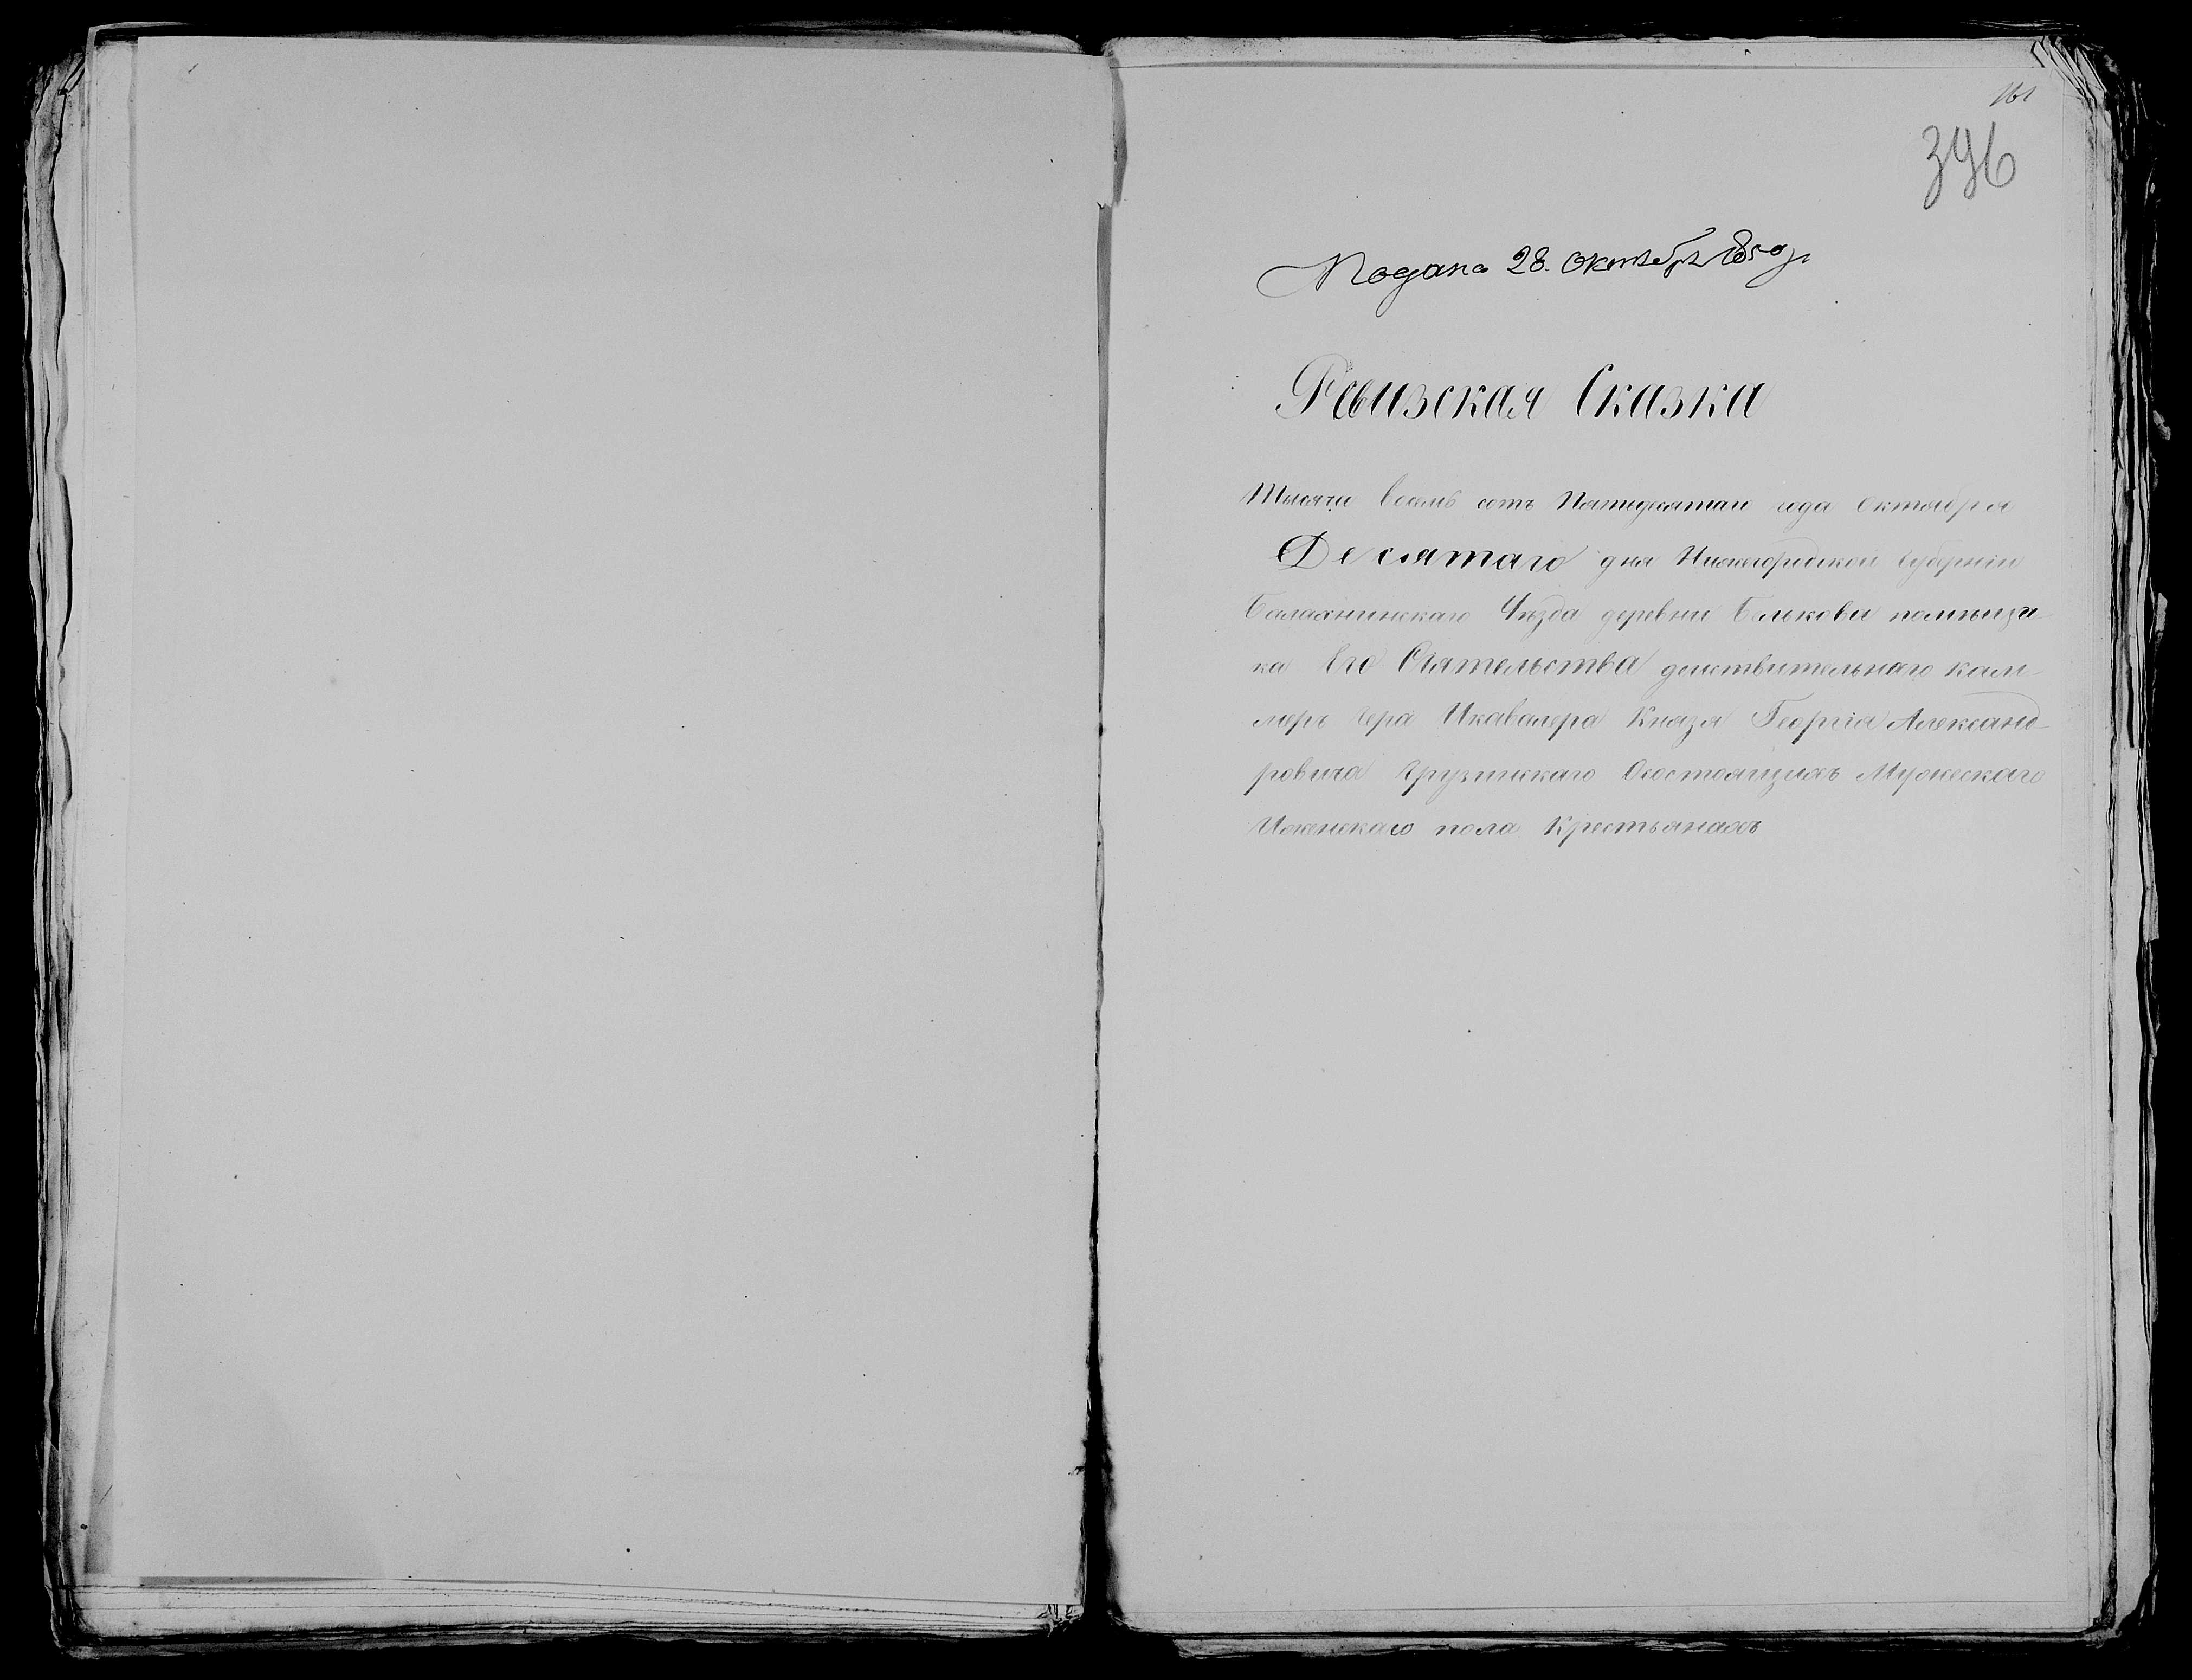 161
396
Подана 28. октября 1850 г.
Ревизская Сказка
Тысячи Восемь сотъ Пятидесятаго года Октября
Десятаго дня Нижегородской Губерніи
Балахнинскаго Уѣзда деревни Белькова помѣщи-
ка Его Сіятельства действительнаго кам-
меръ гера Икавалера Князя Георгія Александ-
ровича Грузинскаго Осостоящихъ Мужескаго
Иженскаго пола Крестьянахъ